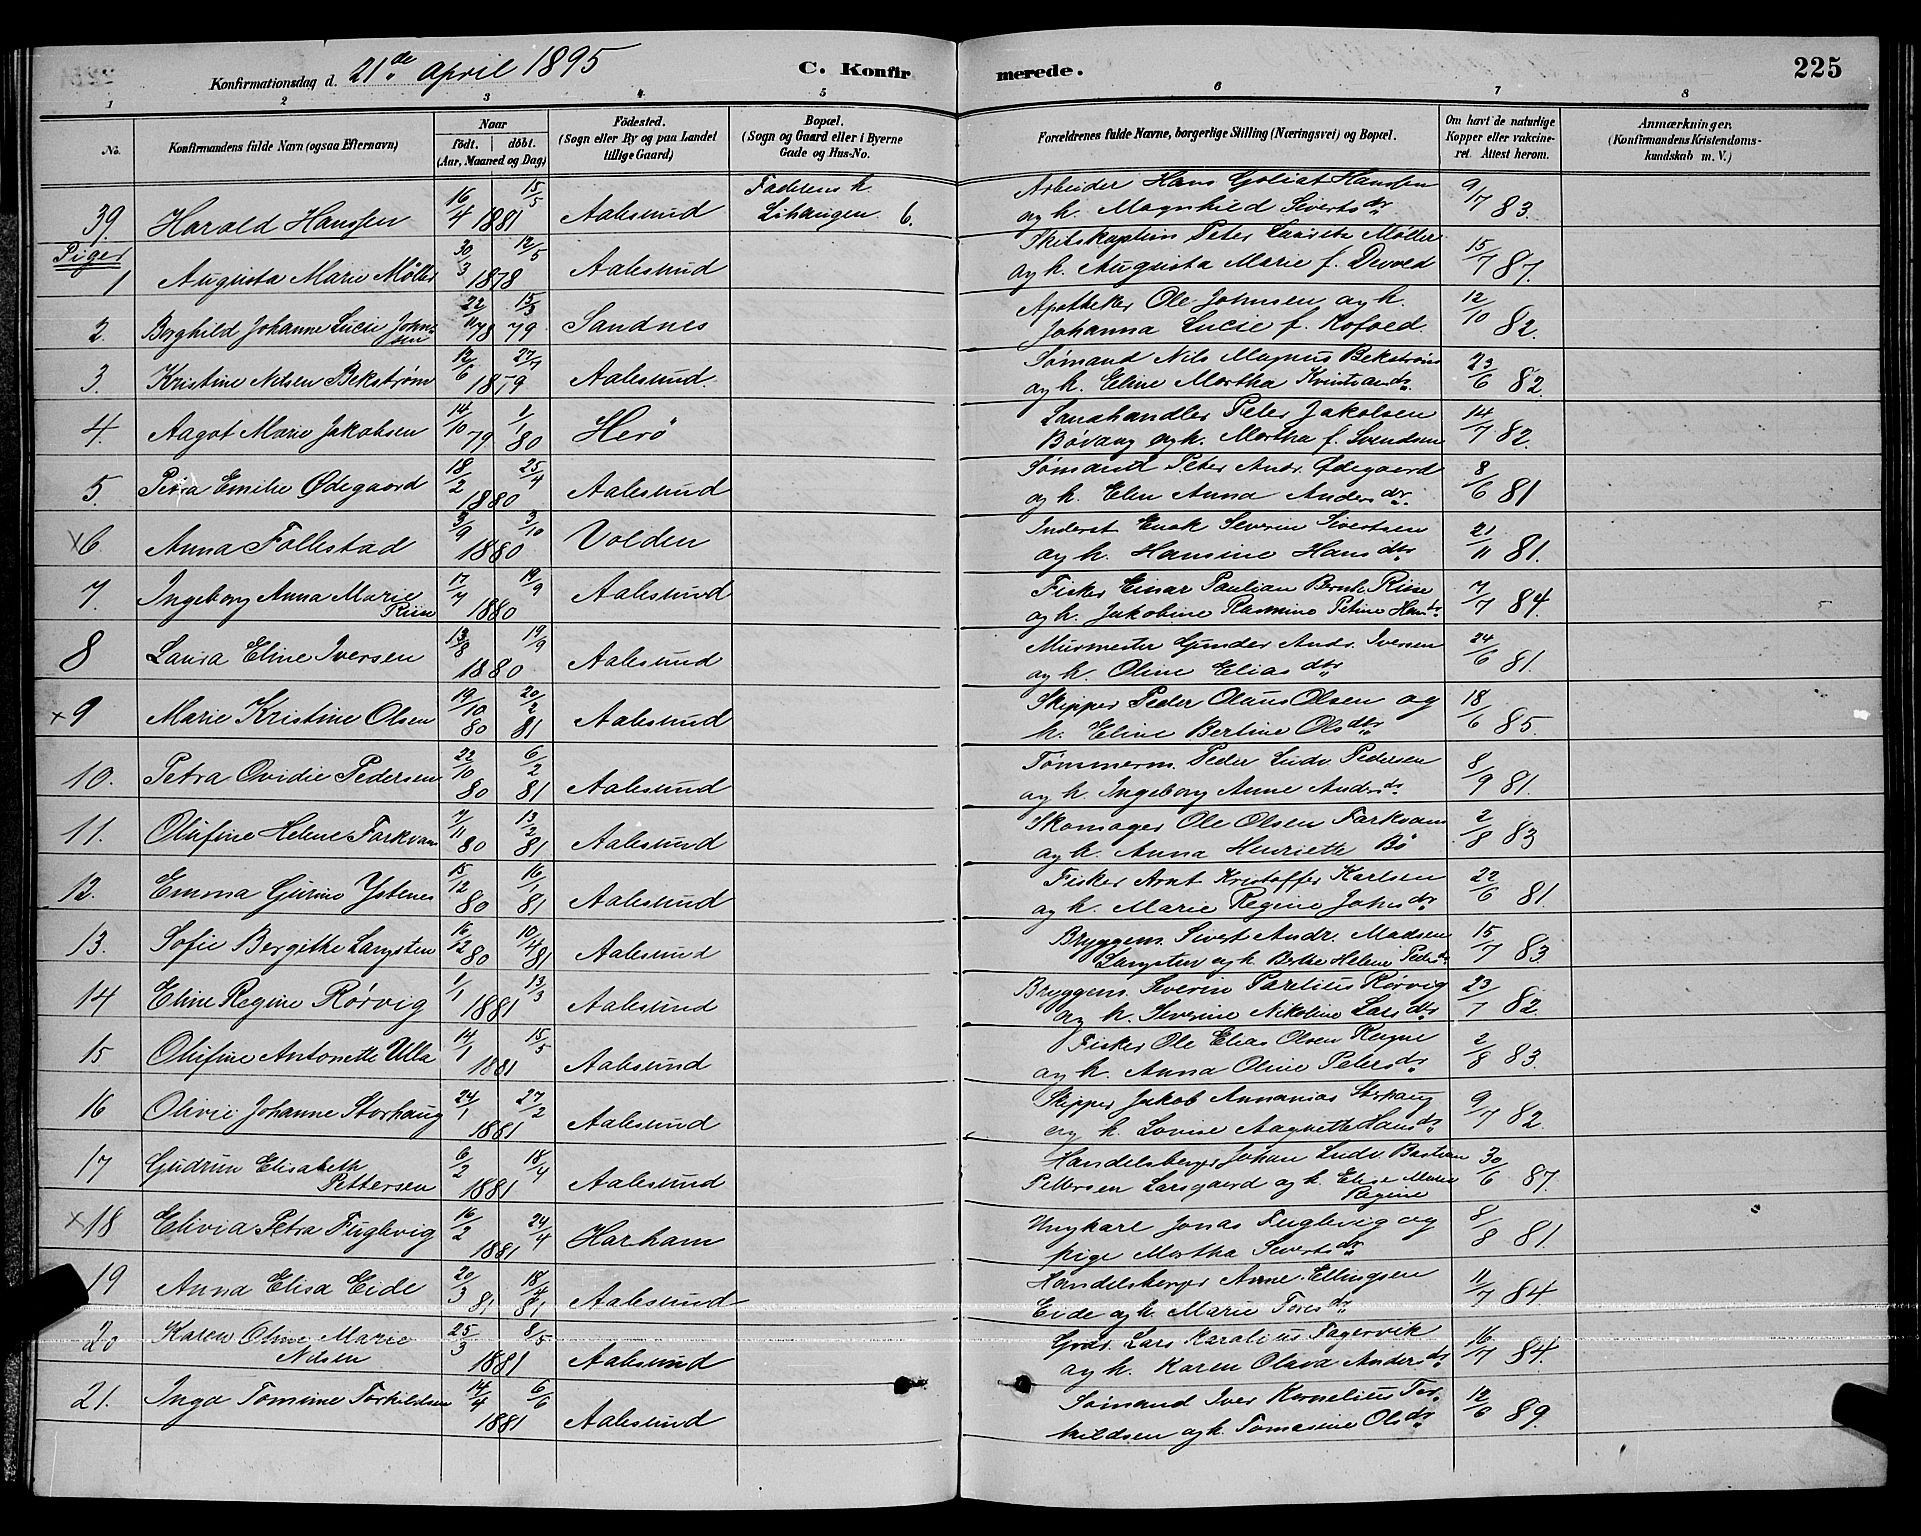 Konfirmationsdag d. 21de April 1895 C. Konfirmerede. 225
1 2 3 4 5 6 7 8
No. Konfirmandens fulde Navn (ogsaa Efternavn) Naar født. døbt. (Aar, Maaned og Dag) Fødested. (Sogn eller By og paa Landet tillige Gaard) Bopæl. (Sogn og Gaard eller i Byerne Gade og Hus-No. Forældrenes fulde Navne, borgerlige Stilling (Næringsvei) og Bopæl. Om havt de naturlige Kopper eller vakcineret. Attest herom. Anmærkninger. (Konfirmandens Kristendomskundskab m. V.)
39. Harald Hanssen 16/4 15/5 1881 Aalesund Faderens h. Lihaugen 6. Arbeider Hans Goliat Hanssen og h. Magnhild Sivertsdr. 9/7 83.
Piger
1 Augusta Marie Møller 30/3 12/5 1878 Aalesund Skibskaptein Peter Møller og h. Augusta Marie f. Devold 15/7 87.
2. Borghild Johanne Lucie Johnsen 22/11 78 15/3 79 Sandnes Apotheker Ole Johnsen og h. Johanna Lucie f. Kofoed 12/10 82.
3. Kristine Nilsen Bekstrøm 12/6 27/7 1879 Aalesund. Sømand Nils Magnus Bekstrøm og h. Eline Martha 23/6 82.
4. Aagot Marie Jakobsen 14/10 79 1/1 80 Herö Landhandler Peter Jakobsen og h. Martha f. Svendsen 14/7 82.
5. Petra Emilie Ødegaard 18/2 25/4 1880 Aalesund Sømand Peter Andr. Ødegaard og h. Elen Anna Andersdr. 8/6 81
x6. Anna Follestad 3/9 3/10 1880 Volden Inderst Enok Severin Sivertsen og h. Hansine Hansdtr 21/11 81.
7. Ingeborg Anna Marie Riise 17/7 19/9 1880 Aalesund Fisker Einar Paulian Bernh. Riise og h. Jakobine Petrine Hansdr. 7/7 84.
8 Laura Eline Iversen 13/8 19/9 1880 Aalesund Murmester Gunder Andr. Iversen og h. Oline Eliasdtr 24/6 81.
x9 Marie Kristine Olsen 19/10 80 20/2 81 Aalesund Skipper Peder Olaus Olsen og h. Eline Bertine Olsdtr. 18/6 85.
10. Petra Ovidie Pedersen 22/10 80 6/2 81 Aalesund Tømmerm. Peder Ludv. Pedersen og h. Ingeborg Anne Andersdr. 8/9 81.
11. Olufine Helene Farkvam 7/11 80 13/2 81 Aalesund Skomager Ole Olsen Farkvam og h. Anna Henriette Bö 2/8 83
12. Emma Gurine Ystenes 15/12 80 16/1 81 Aalesund Fisker Arnt Kristoffer Karlsen og h. Marie Regine Johsdr 22/6 81.
13. Sofie Bergithe Langsten 16/12 80 10/4 81 Aalesund Bryggem. Sivert Andr. Madsen Langsten og h. Berthe Helene Pedersdr. 15/7 83.
14 Eline Regine Rørvig 1/1 13/3 1881 Aalesund Bryggem. Severin Rørvig og h. Severine Nikoline Larsdtr 23/7 82.
15 Olufine Antonette Ulla 14/1 15/5 1881 Aalesund Fisker Ole Elias Olsen og h. Anna Oline Petersdr. 2/8 83.
16 Olivie Johanne Storhaug 24/1 27/2 1881 Aalesund Skipper Jakob Annanias Storhaug og h. Lovise Aagnette Hansdr. 9/7 82.
17 Gudrun Elisabeth Pettersen 6/2 18/4 1881 Aalesund Handelsborger Johan Ludv. Bastian Pettersen Larsgaard og h. Elise Marie Regine 30/6 87.
x18 Elivia Petra Fuglevig 16/2 24/4 1881 Harham Ungkarl Jonas Fuglevig og pige Martha Sivertsdr. 8/8 81.
19 Anna Elisa Eide 20/3 81 18/4 81 Aalesund Handelsborger Arne Ellingsen Eide og h. Marie 11/7 84
20 Karen Oline Marie Nilsen 25/3 8/5 1881 Aalesund Lars Karolius Fagervik og h. Karen Olava Andersdr. 16/7 84.
21. Inga Tomine Torkildsen 14/4 6/6 1881 Aalesund Sømand Iver Kornelius Torkildsen og h. Tomasine Olsdr. 12/6 89.